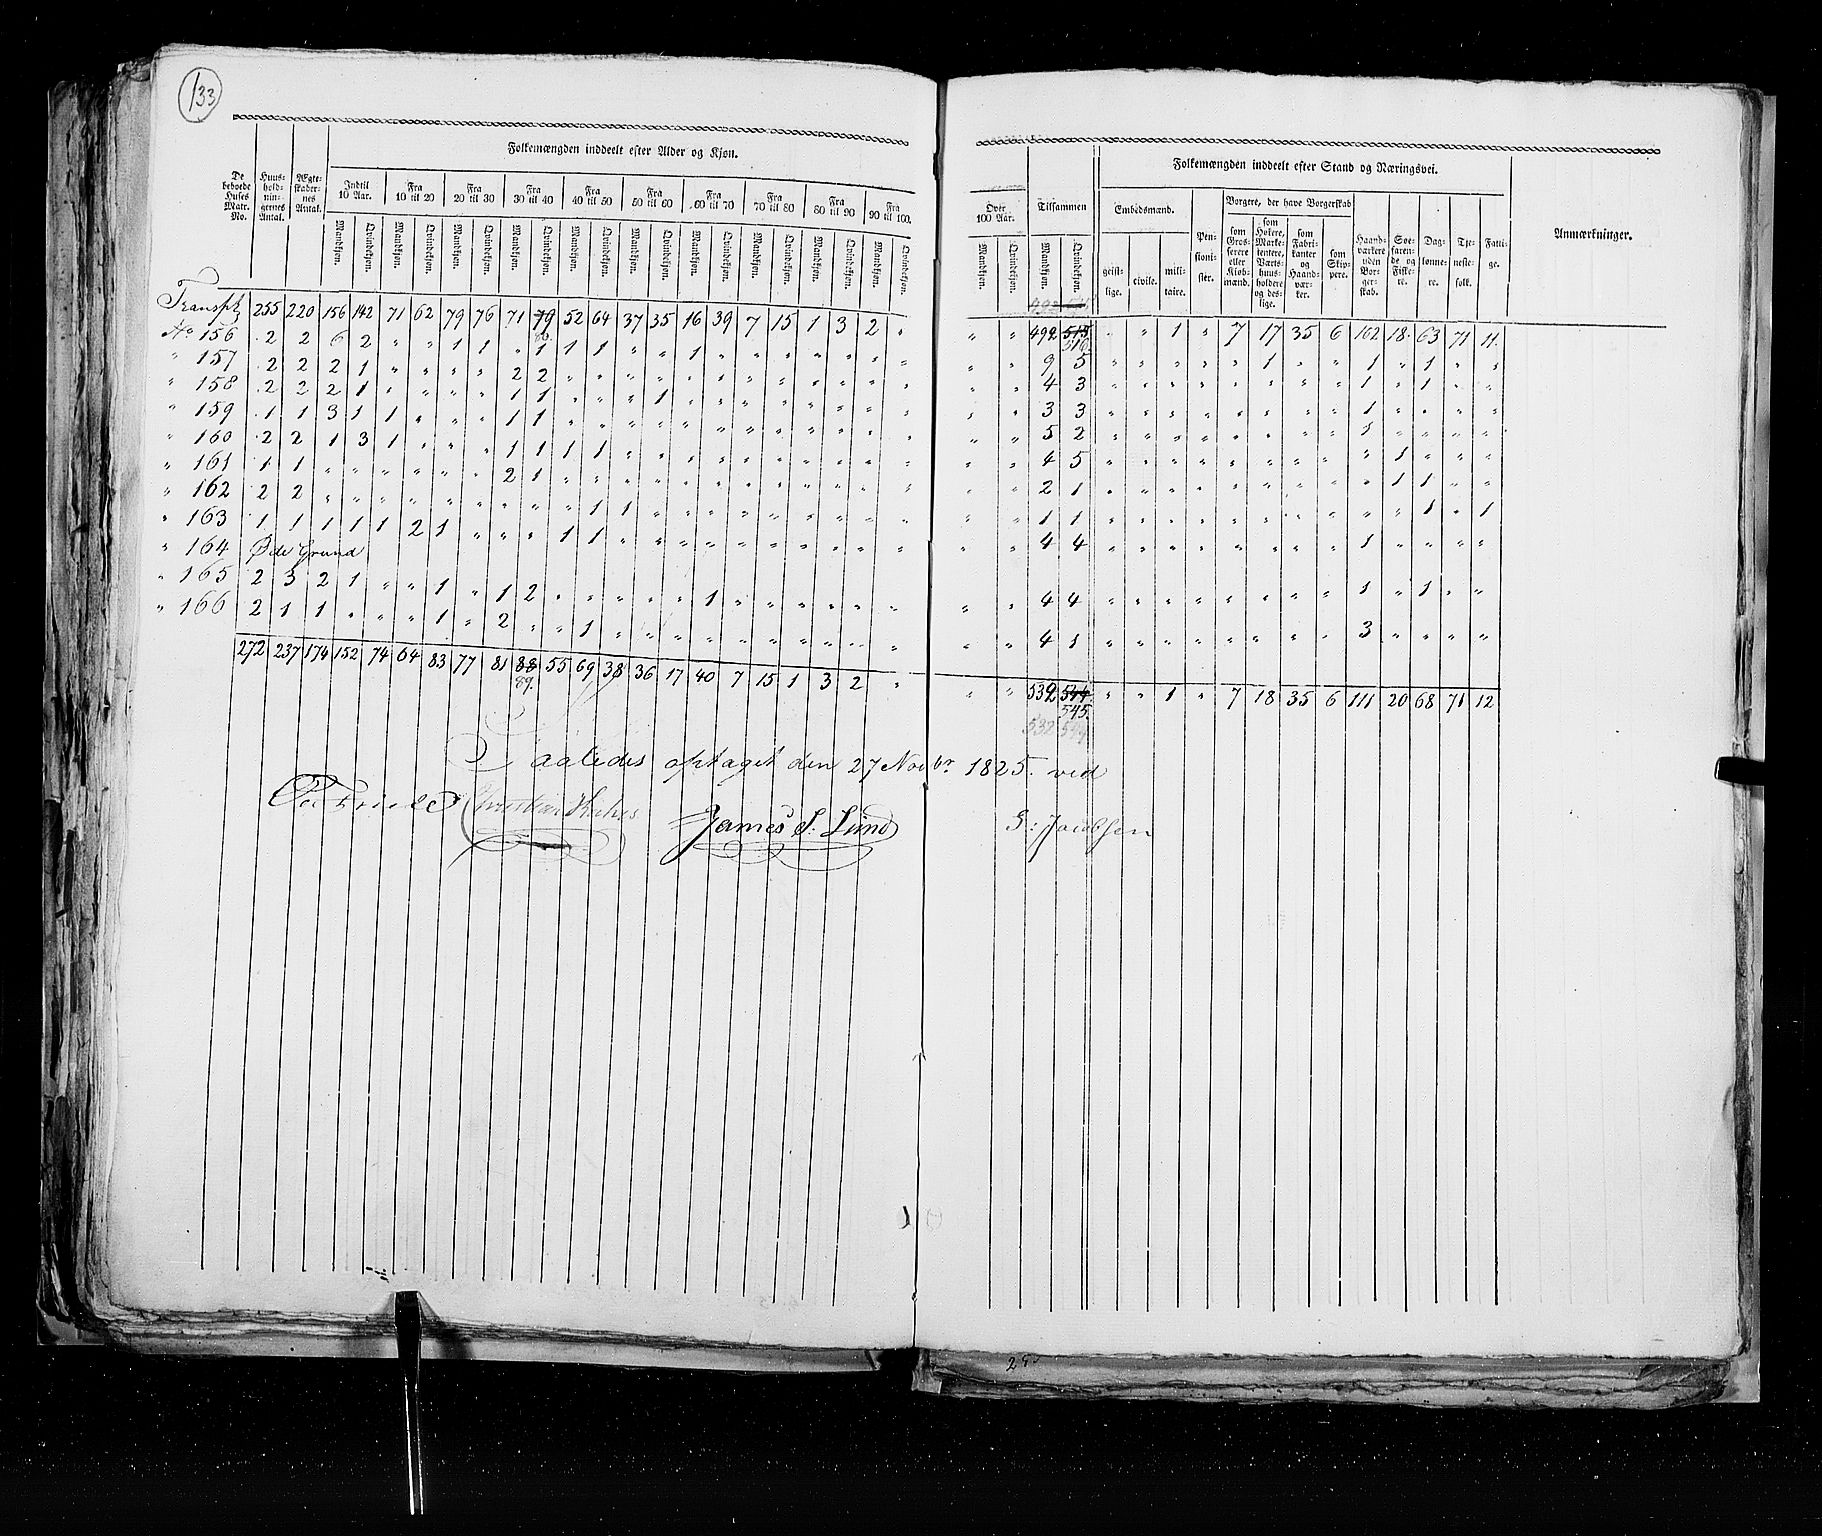 133
Folkemængden inddeelt efter Alder og Kjøn.
Folkemængden inddeelt efter Stand og Næringsvei.
De beboede Huses Matr. No. | Huusholdningernes Antal. | Ægteskabernes Antal. | Indtil 10 Aar. | Fra 10 til 20 | Fra 20 til 30 | Fra 30 til 40 | Fra 40 til 50 | Fra 50 til 60 | Fra 60 til 70 | Fra 70 til 80 | Fra 80 til 90 | Fra 90 til 100. | Over 100 Aar. | Tilsammen | Embedsmænd. | Pensionister. | Borgere, der have Borgerskab | Haandværkere uden Borgerskab. | Søefarende og Fiskere. | Daglønnere. | Tjenestefolk. | Fattige. | Anmærkninger.
Mandkjøn. Qvindekjøn. Mandkjøn. Qvindekjøn. Mandkjøn. Qvindekjøn. Mandkjøn. Qvindekjøn. Mandkjøn. Qvindekjøn. Mandkjøn. Qvindekjøn. Mandkjøn. Qvindekjøn. Mandkjøn. Qvindekjøn. Mandkjøn. Qvindekjøn. Mandkjøn. Qvindekjøn. Mandkjøn. Qvindekjøn. Mandkjøn. Qvindekjøn. geistlige. civile. militaire. som Grosserere eller Kjøbmænd. som Høkere, Marketentere, Værtshuusholdere og deslige. som Fabrikanter og Haandværker. som Skippere.
Transpt 255 220 156 142 71 62 79 76 71 79 52 64 37 35 16 39 7 15 1 3 2 " " " 492 515 " " 1 " 7 17 35 6 102 18 63 71 11
80. 516.
No 156 2 2 6 2 " " 1 1 " 1 1 1 " " 1 " " " " " " " " " 9 5 " " " " " 1 " " 1 " 1 " "
" 157 2 2 2 1 " " " " 2 2 " " " " " " " " " " " " " " 4 3 " " " " " " " " 1 " 1 " "
" 158 2 2 2 1 " " " " 1 1 " " " 1 " " " " " " " " " " 3 3 " " " " " " " " 1 " " " "
" 159 1 1 3 1 1 " " " 1 1 " " " " " " " " " " " " " " 5 2 " " " " " " " " 1 " " " "
" 160 2 2 1 3 1 " " " 1 1 1 1 " " " " " " " " " " " " 4 5 " " " " " " " " " 1 " " "
" 161 1 1 " " " " " " 2 1 " " " " " " " " " " " " " " 2 1 " " " " " " " " " 1 1 " "
" 162 2 2 " " " " " " " " 1 1 " " " " " " " " " " " " 1 1 " " " " " " " " " " 1 " 1
" 163 1 1 1 1 1 2 1 " " " 1 1 " " " " " " " " " " " " 4 4 " " " " " " " " 1 " " " "
" 164 Øde Grund
" 165 2 3 2 1 " " 1 " 1 2 " " " " " 1 " " " " " " " " 4 4 " " " " " " " " 1 " 1 " "
" 166 2 1 1 " " " 1 " 2 " " 1 " " " " " " " " " " " " 4 1 " " " " " " " " 3 " " " "
272 237 174 152 74 64 83 77 81 88 55 69 38 36 17 40 7 15 1 3 2 " " " 532 544 " " 1 " 7 18 35 6 111 20 68 71 12
89. 545.
532
Saaledes optaget den 27 Novbr 1825. ved
James S: Lund
S: Jacobsen